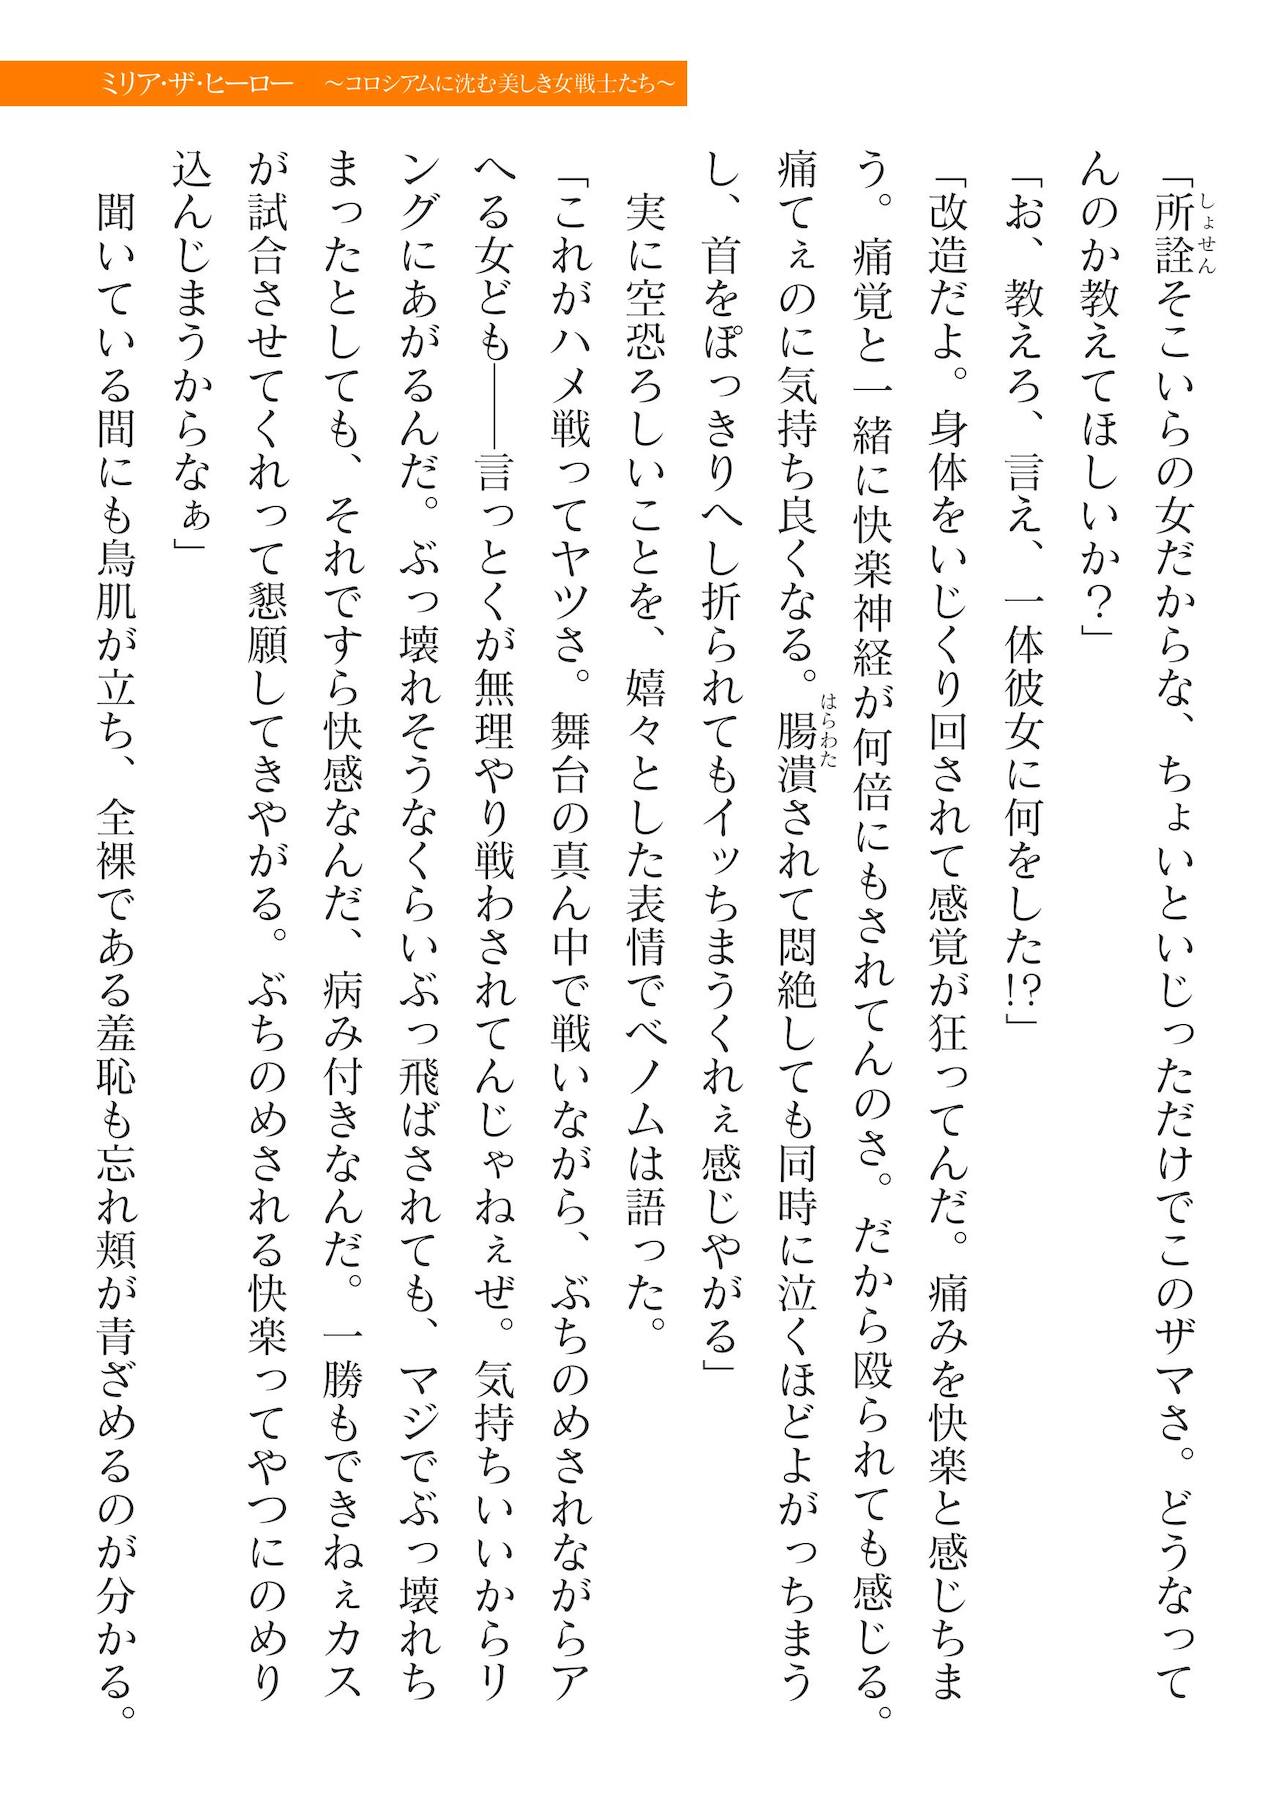 ミリア・ザ・ヒーロー　～コロシアムに沈む美しき女戦士たち～
「所詮そこいらの女だからな、ちょいといじっただけでこのザマさ。どうなって
しょせん
んのか教えてほしいか？」
「お、教えろ、言え、一体彼女に何をした!?」
「改造だよ。身体をいじくり回されて感覚が狂ってんだ。痛みを快楽と感じちま
う。痛覚と一緒に快楽神経が何倍にもされてんのさ。だから殴られても感じる。
痛てぇのに気持ち良くなる。腸潰されて悶絶しても同時に泣くほどよがっちまう
はらわた
し、首をぽっきりへし折られてもイッちまうくれぇ感じやがる」
　実に空恐ろしいことを、嬉々とした表情でベノムは語った。
「これがハメ戦ってヤツさ。舞台の真ん中で戦いながら、ぶちのめされながらア
へる女ども――言っとくが無理やり戦わされてんじゃねぇぜ。気持ちいいからリ
ングにあがるんだ。ぶっ壊れそうなくらいぶっ飛ばされても、マジでぶっ壊れち
まったとしても、それですら快感なんだ、病み付きなんだ。一勝もできねぇカス
が試合させてくれって懇願してきやがる。ぶちのめされる快楽ってやつにのめり
込んじまうからなぁ」
　聞いている間にも鳥肌が立ち、全裸である羞恥も忘れ頬が青ざめるのが分かる。